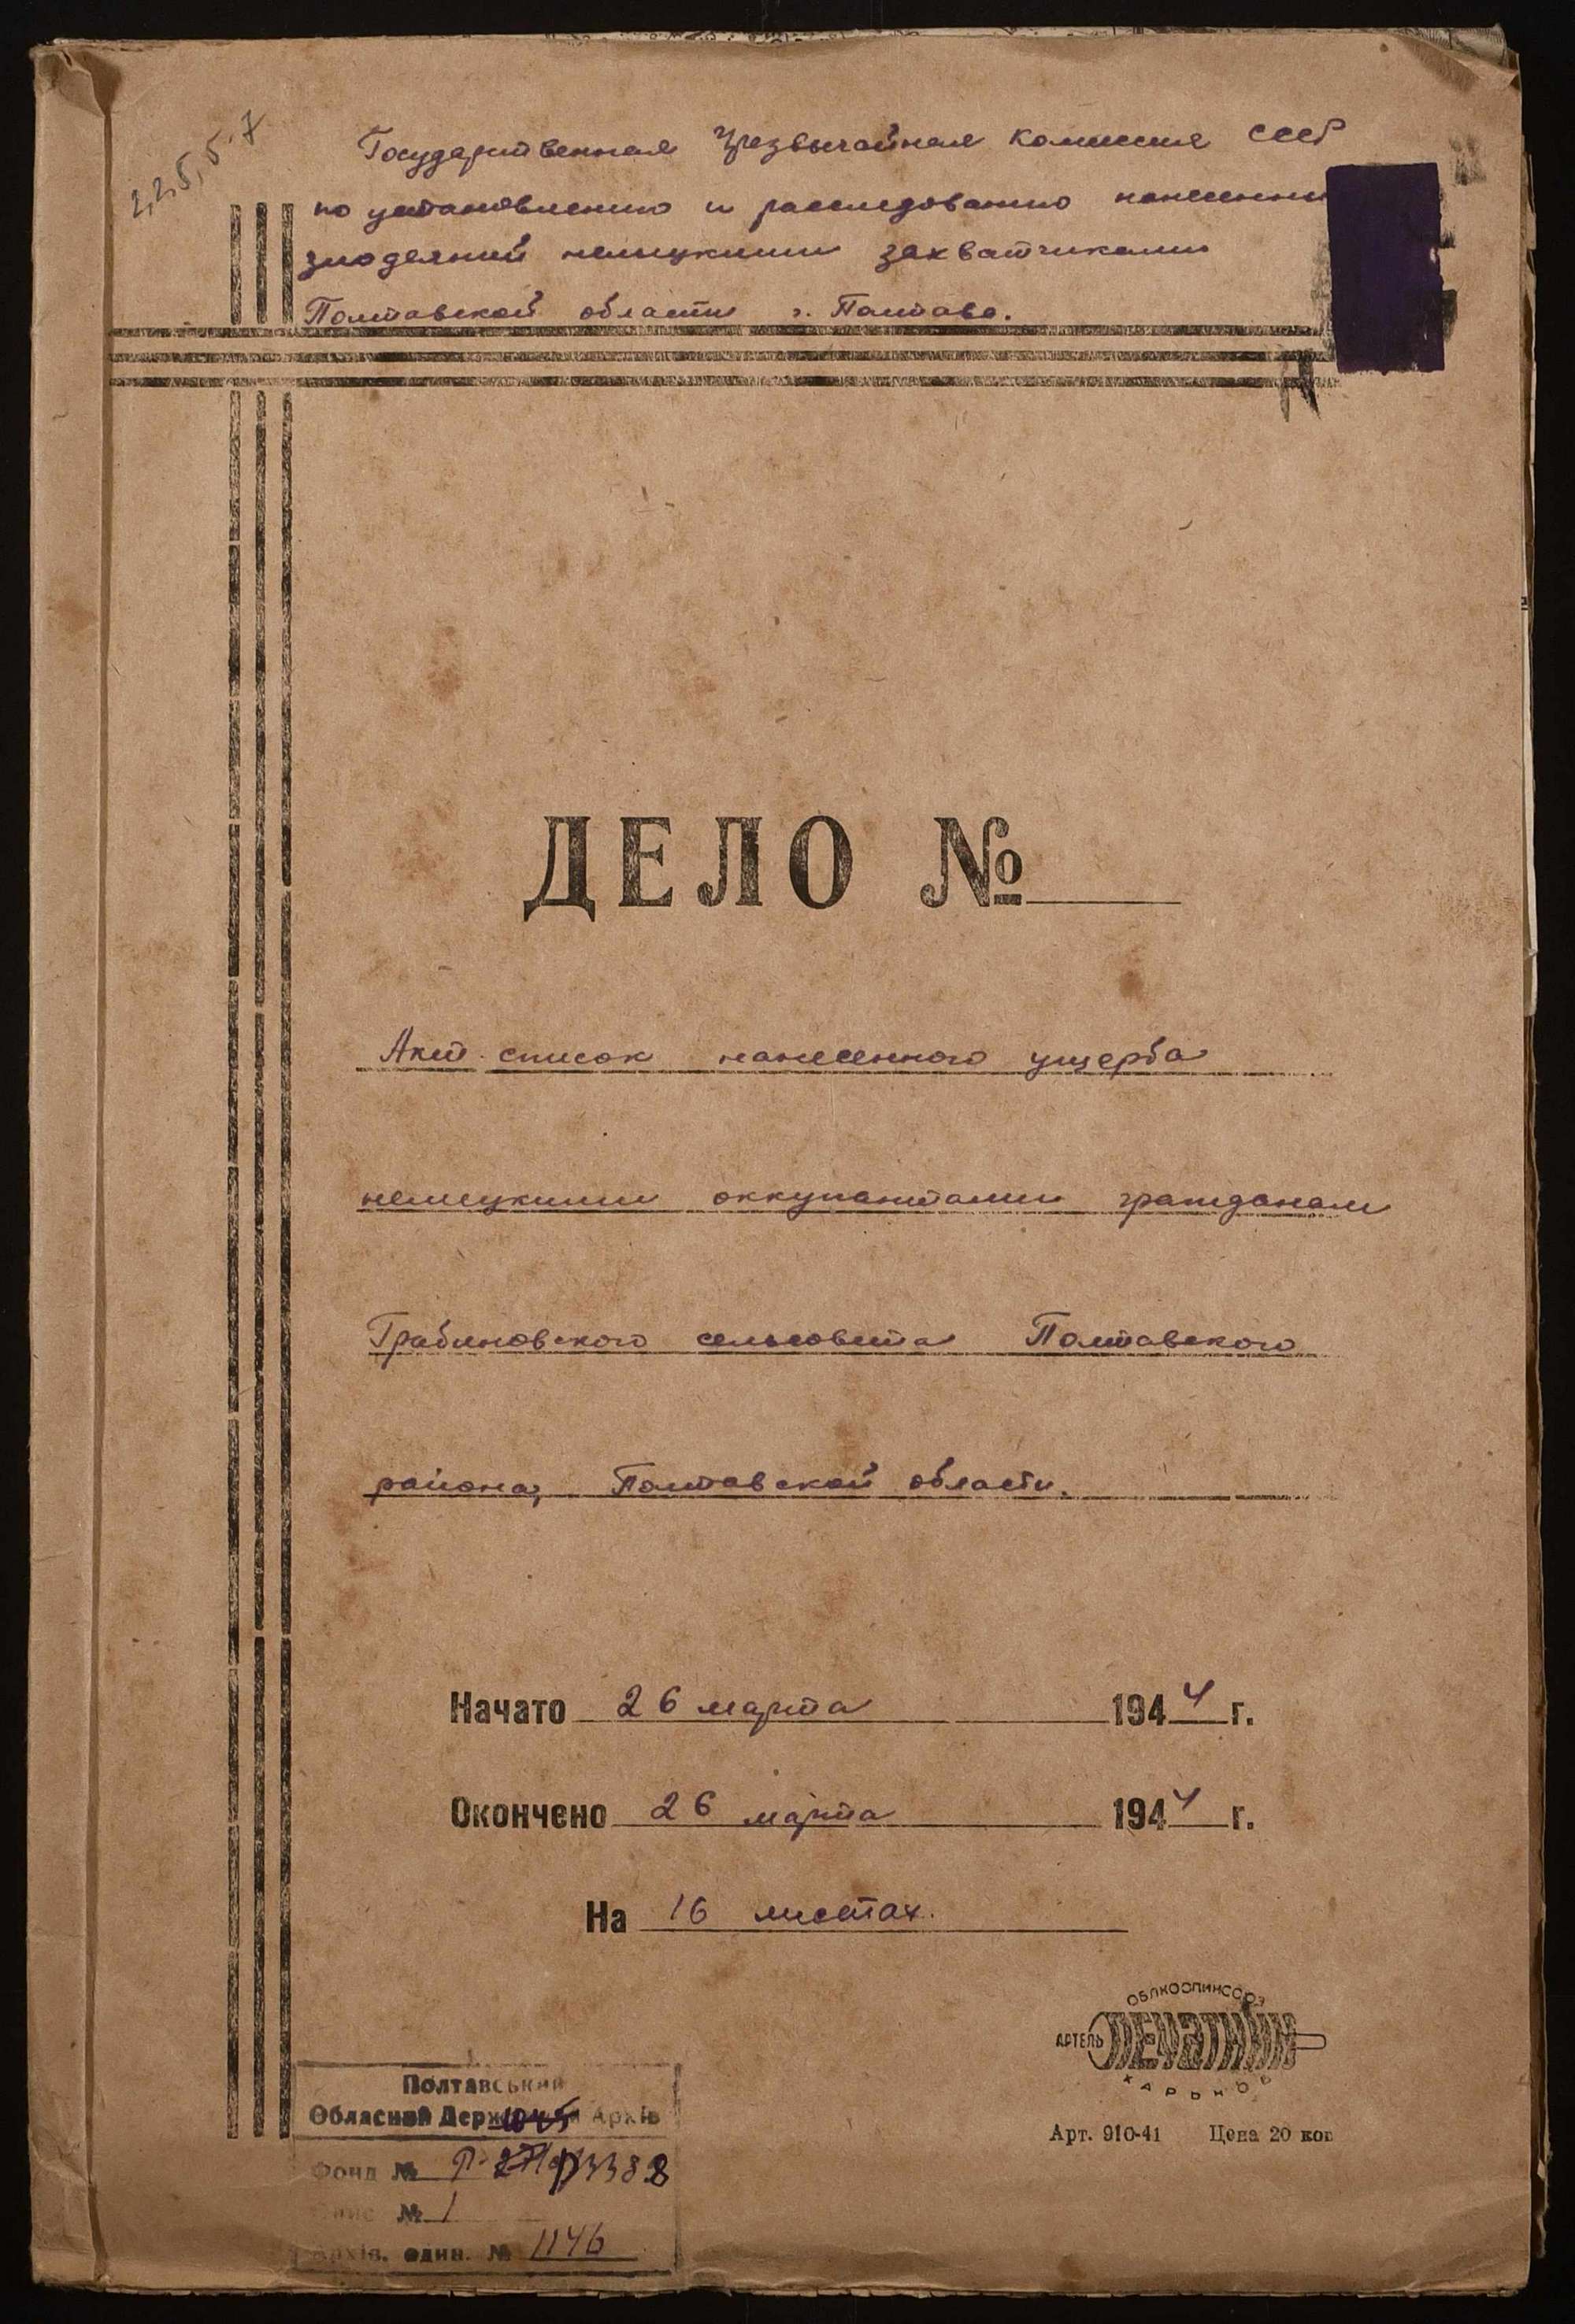 2,2,5,5-7
Государственная Чрезвычайная Комиссия СССР
по установлению и расследованию нанесенны
злодеяний немецкими захватчиками
Полтавской области г. Полтаво.
ДЕЛО №
Акт-список нанесенного ущерба
немецкими оккупантами гражданам
Грабиновского сельсовета Полтавского
района, Полтавской области.
Начато 26 марта 1944 г.
Окончено 26 марта 1944 г.
На 16 листах.
ОБЛКООПИНСОЮЗ
АРТЕЛЬ ПЕЧАТНИК
ХАРЬКОВ
Арт. 910-41 Цена 20 коп
Полтавський
Обласний Державний Архів
Фонд № Р-3388
Опис № 1
Архів. один. № 1146